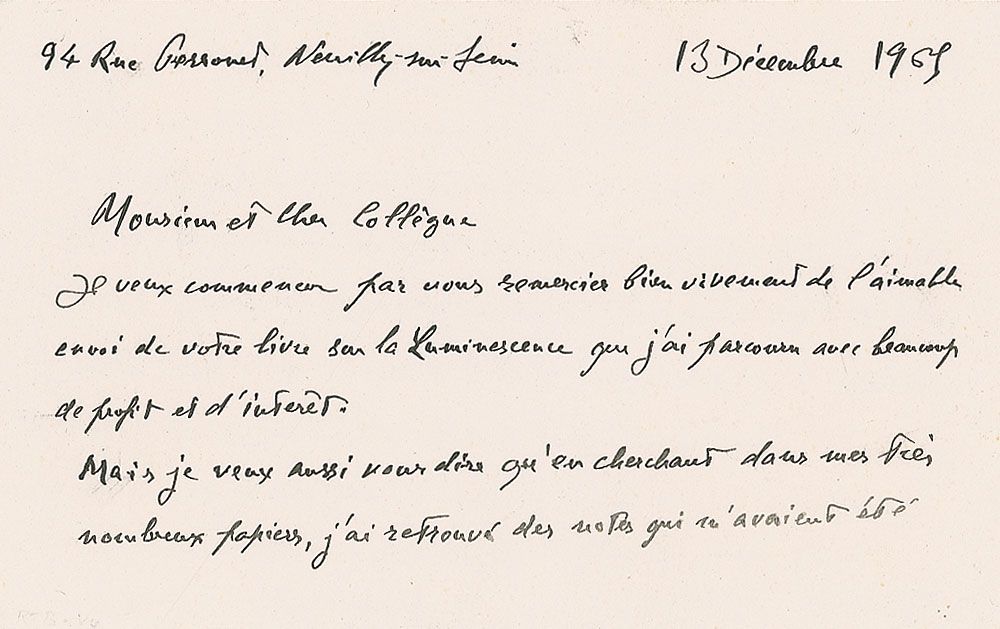 94 Rue Perronet, Neuilly-sur-Seine
13 Décembre 1965
Monsieur et Cher Collègue
Je veux commencer par vous remercier bien vivement de l'aimable
envoi de votre livre sur la Luminescence que j'ai parcouru avec beaucoup
de profit et d'interêt.
Mais je veux aussi vous dire qu'en cherchant dans mes très
nombreux papiers, j'ai retrouvé des notes qui m'avaient été